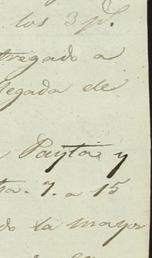 los 3 pl.
tregado a
legada de
Payta y
ta. 7. a 15
do la mayor